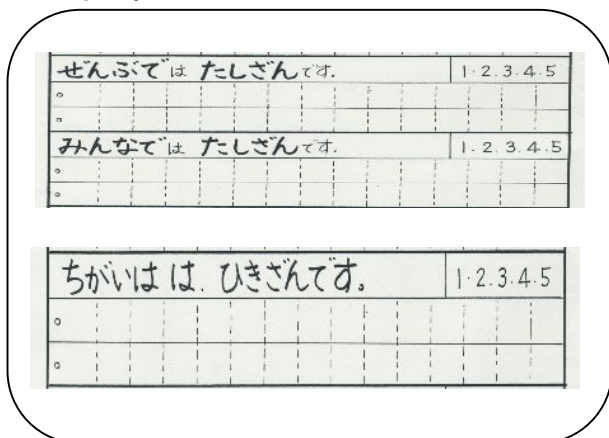 ぜんぶでは たしざんです. 1・2.3.4.5
みんなでは たしざんです. 1.2.3.4.5
ちがいは は. ひきざんです。 1・2.3.4.5